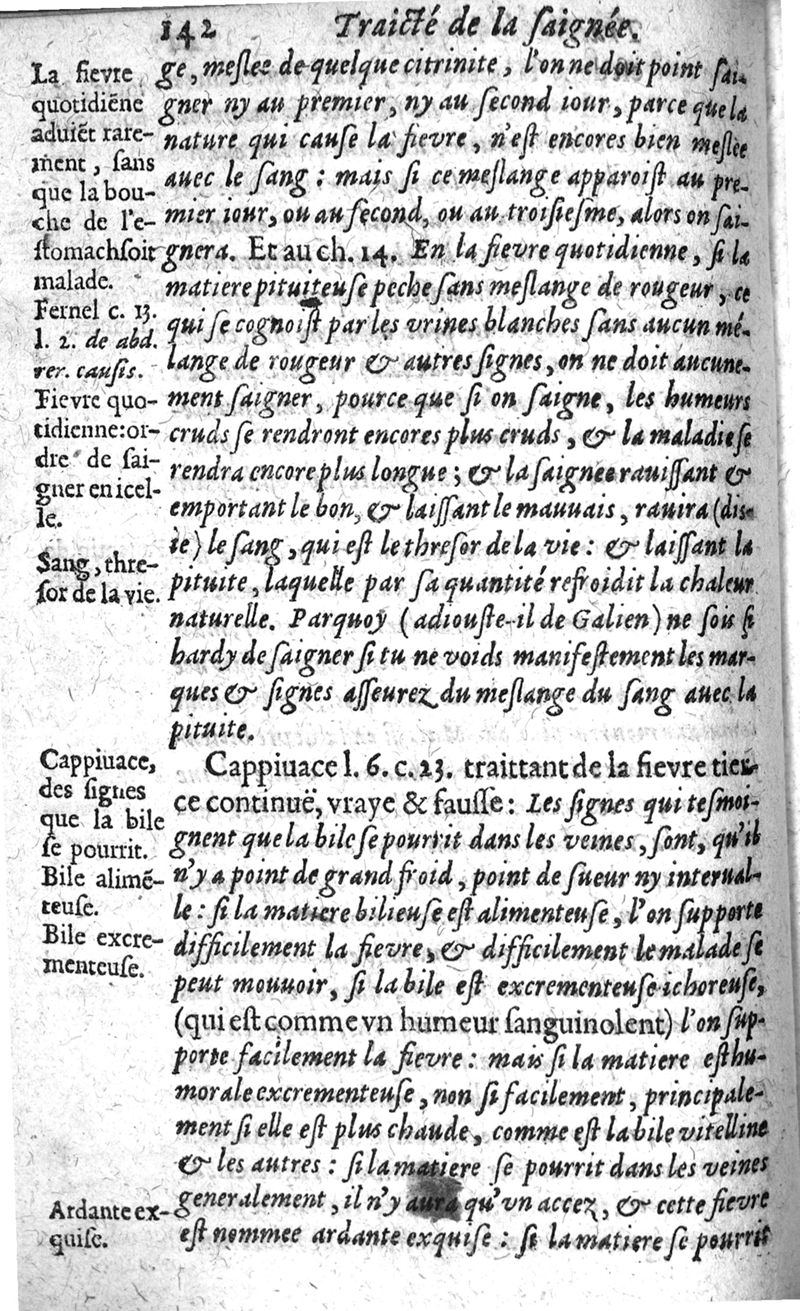 142 Traicté de la saignée.
La fievre
quotidiẽne
aduiẽt rare-
ment, sans
que la bou-
che de l'e-
stomach soit
malade.
Fernel c. 13.
l. 2. de abd.
rer. causis.
Fievre quo-
tidienne: or-
dre de sai-
gner en icel-
le.
Sang, thre-
sor de la vie.
ge, meslee de quelque citrinite, l'on ne doit point sai-
gner ny au premier, ny au second iour, parce que la
nature qui cause la fievre, n'est encores bien meslée
auec le sang : mais si ce meslange apparoist au pre-
mier iour, ou au second, ou au troisiesme, alors on sai-
gnera. Et au ch. 14. En la fievre quotidienne, si la
matiere pituiteuse peche sans meslange de rougeur, ce
qui se cognoist par les vrines blanches sans aucun mé-
lange de rougeur & autres signes, on ne doit aucune-
ment saigner, pource que si on saigne, les humeurs
cruds se rendront encores plus cruds, & la maladie se
rendra encore plus longue ; & la saignee rauissant &
emportant le bon, & laissant le mauuais, rauira (dis-
ie) le sang, qui est le thresor de la vie : & laissant la
pituite, laquelle par sa quantité refroidit la chaleur
naturelle. Parquoy (adiouste-il de Galien) ne sois si
hardy de saigner si tu ne voids manifestement les mar-
ques & signes asseurez du meslange du sang auec la
pituite.
Cappiuace,
des signes
que la bile
se pourrit.
Bile alimẽ-
teuse.
Bile excre-
menteuse.
Cappiuace l. 6. c. 23. traittant de la fievre tier-
ce continuë, vraye & fausse : Les signes qui tesmoi-
gnent que la bile se pourrit dans les veines, sont, qu'il
n'y a point de grand froid, point de sueur ny interual-
le : si la matiere bilieuse est alimenteuse, l'on supporte
difficilement la fievre, & difficilement le malade se
peut mouuoir, si la bile est excrementeuse ichoreuse,
(qui est comme vn humeur sanguinolent) l'on sup-
porte facilement la fievre : mais si la matiere est hu-
morale excrementeuse, non si facilement, principale-
ment si elle est plus chaude, comme est la bile vitelline
& les autres : si la matiere se pourrit dans les veines
generalement, il n'y aura qu'vn accez, & cette fievre
est nommee ardante exquise : si la matiere se pourrit
Ardante ex-
quise.